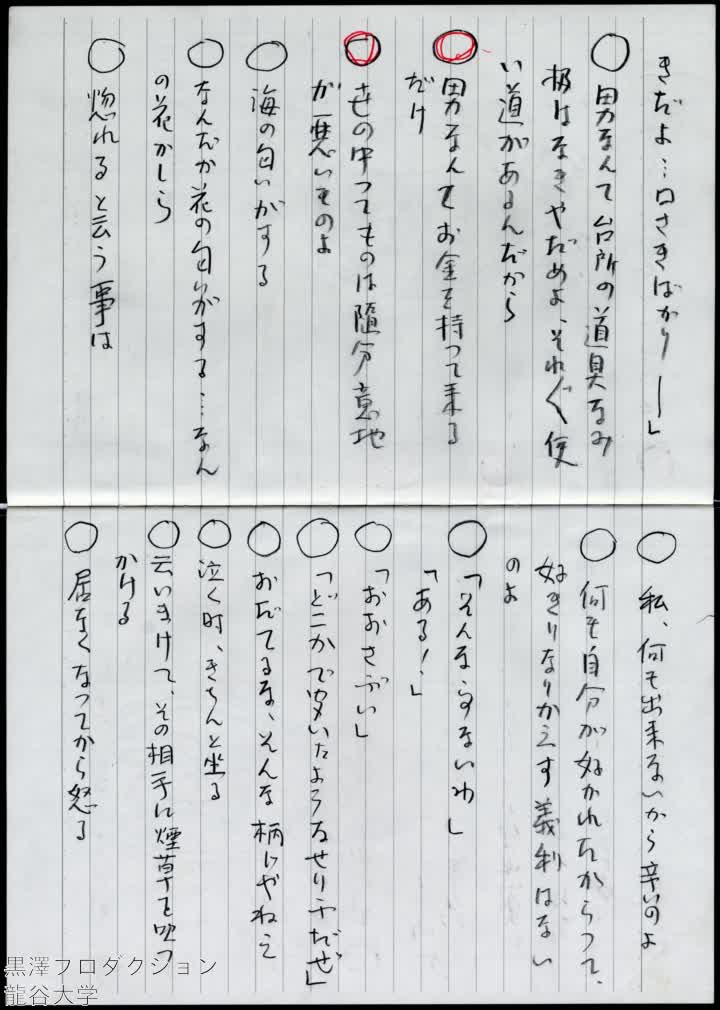 きだよ…口さきばかり―」
○ 男なんて台所の道具なみ
扱はなきやだめよ、それぐ使
い道があるんだから
○ 男なんてお金を持って来る
だけ
○ 世の中ってものは随分意地
が悪いものよ
○ 海の匂いがする
○ なんだか花の匂いがする…なん
の花かしら
○ 惚れると云う事は
○ 私、何も出来ないから辛いのよ
○ 何も自分が好かれたからって、
好きりなりかえす義利はない
のよ
○ 「そんな
ないわ」
「ある!」
○ 「おおさぶい」
○ 「どこかで聞いたようなせりふだぜ」
○ おだてるな、そんな柄じやねえ
○ 泣く時、きちんと坐る
○ 云いまけて、その相手に煙草を吹っ
かける
○ 居なくなってから怒る
黒澤プロダクション
龍谷大学